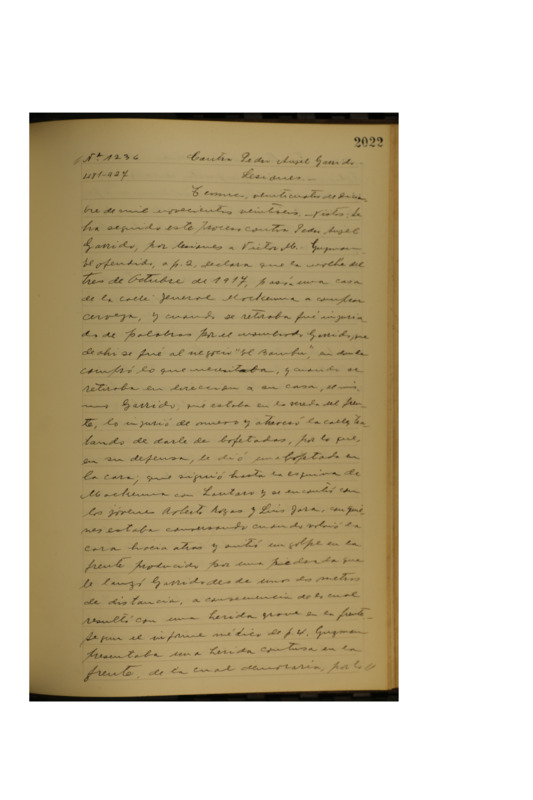 2022
Nº 1236 Contra Pedro Angel Garrido.-
Lesiones.-
Temuco, veinticuatro de Diciem
bre de mil novecientos veintiseis.- Vistos: Se
ha seguido este proceso contra Pedro Angel
Garrido, por lesiones a Victor M. Guzman.
El ofendido, a p. 2, declara que la noche del
tres de Octubre de 1917, pasó a una casa
de la calle General Mackenna a comprar
cerveza, y cuando se retiraba fué injuria
do de palabras por el nombrado Garrido, que
de ahi se fué al negocio "El Bambú", en donde
compró lo que necesitaba, y cuando se
retiraba en direccion a su casa, el mis
mo Garrido, que estaba en la vereda del fren
te, lo injurió de nuevo y atravesó la calle, tra
tando de darle de bofetadas, por lo que,
en su defensa, le dió una bofetada en
la cara; que siguió hasta la esquina de
Mackenna con Lautaro y se encontró con
los jóvenes Roberto Rojas y Luis Jara, con quie
nes estaba conversando cuando volvió la
cara hacia atras y sintió un golpe en la
frente producido por una pedrada que
le lanzó Garrido desde unos dos metros
de distancia, a consecuencia de lo cual
resultó con una herida grave en la frente.
Segun el informe médico de p. 4, Guzman
presentaba una herida contusa en la
frente, de la cual demoraria, por lo